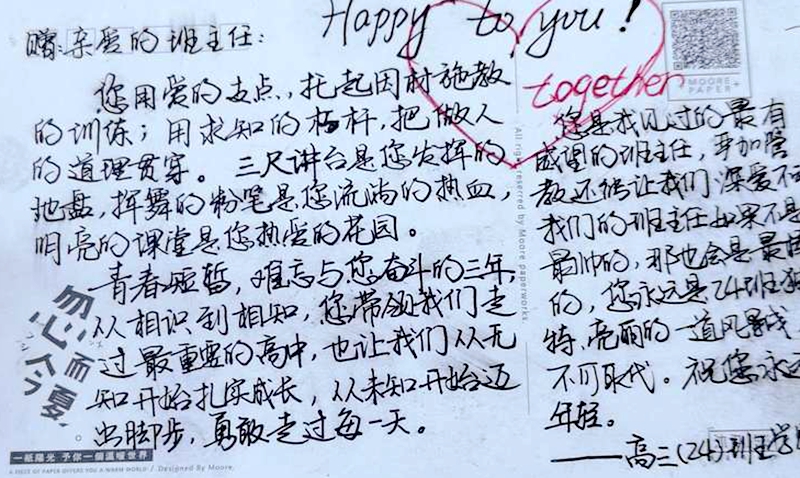 Happy to you!
together
MOORE
PAPER
赠:亲爱的班主任:
您用爱的支点,托起因材施教
的训练;用求知的杠杆,把做人
的道理贯穿。三尺讲台是您发挥的
地盘,挥舞的粉笔是您流淌的热血,
明亮的课堂是您热爱的花园。
青春短暂,难忘与您奋斗的三年,
从相识到相知,您带领我们走
过最重要的高中,也让我们从无
知开始扎实成长,从未知开始迈
出脚步,勇敢走过每一天。
您是我见过的最有
威望的班主任,
教还能让我们深爱不
我们的班主任如果不是
最帅的,那也会是最
的,您永远是24班
特、亮丽的一道风景线
不可取代。祝您永远
年轻。
——高三(24)班
All rights reserved by Moore paperworks.
一紙陽光 予你一個溫暖世界
A PIECE OF PAPER OFFERS YOU A WARM WORLD / Designed By Moore.